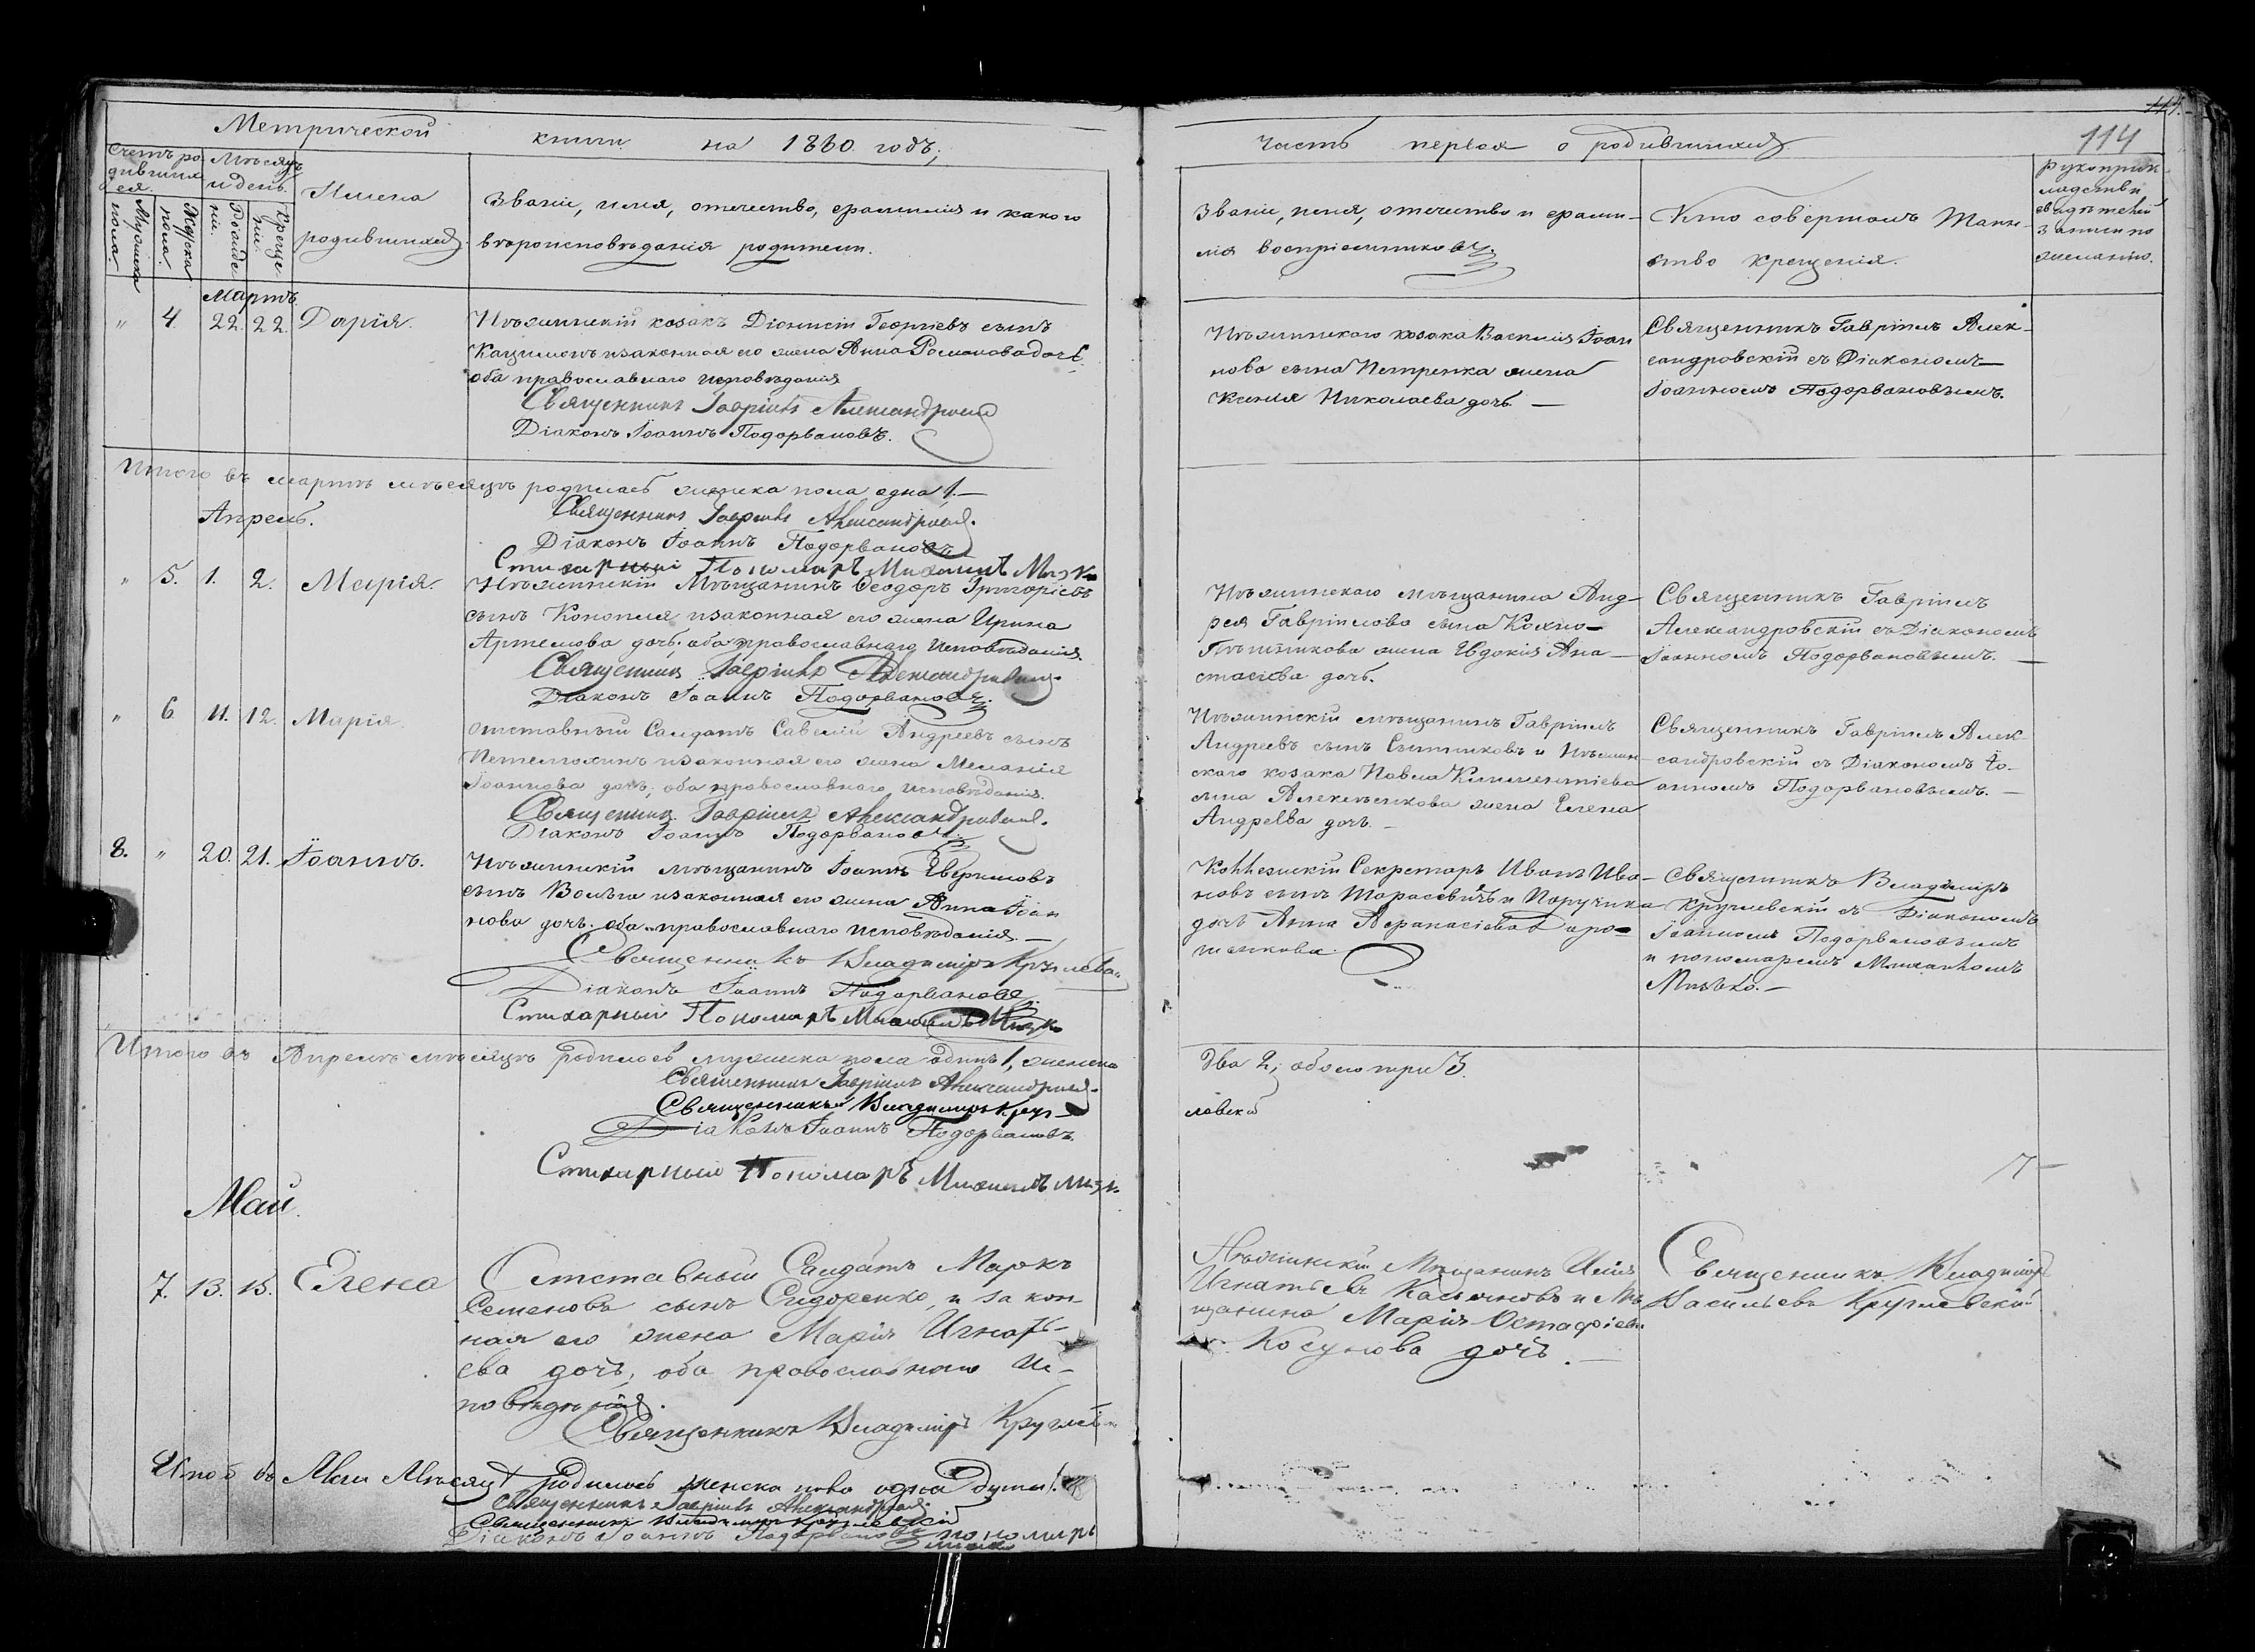 Метрической книги на 1860 годъ,
Счетъ ро-
дивших
ся.
Мѣсяцъ
и день
Мужска
пола.
Женска
пола.
Рожде
нія.
Креще
нія.
Имена
родившихся.
Званіе, имя, отчество, фамилія и какого
вѣроисповѣданія родители.
Мартъ
" 4 22. 22. Дарія.
Нѣжинскій козакъ Діонисій Георгіевъ сынъ
и законная его жена Анна Романова доч.
оба православнаго исповѣданія
Священникъ Гавріилъ Александровскій
Діаконъ Іоаннъ Подорвановъ.
Итого въ мартѣ мѣсяцѣ родилась женска пола одна 1.—
Священникъ Гавріилъ Александровскій.
Апрель.
Діаконъ Іоаннъ Подорвановъ
Стихарный Пономарь Михаилъ
" 5. 1. 2. Марія.
Нѣжинскій Мѣщанинъ Феодоръ Григоріевъ
сынъ Конопля и законная его жена Ирина
Артемова дочь. оба православнаго исповѣданія.
Священникъ Гавріилъ Александровскій.
Діаконъ Іоаннъ Подорвановъ.
" 6 11. 12. Марія.
отставный Салдатъ Савелій Андреевъ сынъ
и законная его жена Меланія
Іоаннова дочь; оба православнаго исповѣданія.
Священникъ Гавріилъ Александровскій.
Діаконъ Іоаннъ Подорвановъ.
8. " 20. 21. Іоаннъ.
Нѣжинскій мѣщанинъ Іоаннъ
сынъ и законная его жена Анна Іоан
нова дочь. оба православнаго исповѣданія.—
Священникъ Владиміръ Круглевск
Діаконъ Іоаннъ Подорвановъ.
Стихарный Пономарь Михаилъ
Итого въ Апрелѣ мѣсяцѣ родилось мужеска пола одинъ 1, женска
Священникъ Гавріилъ Александровскій.
Священникъ Владиміръ Круг-
Діаконъ Іоаннъ Подорвановъ.
Стихарный Пономарь Михаилъ
Май.
7. 13. 15. Елена
Отставный Салдатъ Маркъ
Семеновъ сынъ Сидоренко, и закон
ная его жена Марія Игнать-
ева дочь, оба православнаго Ис-
повѣданія.
Священникъ Владиміръ Круглев
Итого въ Маи Мѣсяцѣ родилось женска пола одна душа 1.
Священникъ Гавріилъ Александровскій.
Священникъ Владиміръ Круглевскій
Діаконъ Іоаннъ Подорвановъ пономарь
часть первая о родившихся
114
Званіе, имя, отчество и фами-
лія воспріемниковъ
Кто совершалъ Таин-
ство крещенія.
Рукоприк
ладство
свидѣтелей
записи по
желанію.
Нѣжинскаго козака Василія Іоан
нова сына Петренка жена
Ксенія Николаева дочь.—
Священникъ Гавріилъ Алек-
сандровскій съ Діакономъ
Іоанномъ Подорвановымъ.
Нѣжинскаго мѣщанина Анд-
рея Гавріилова сына
жена Евдокія Ана-
стасіева дочь.
Священникъ Гавріилъ
Александровскій съ Діакономъ
Іоанномъ Подорвановымъ.—
Нѣжинскій мѣщанинъ Гавріилъ
Андреевъ сынъ Сытниковъ и Нѣжин-
скаго козака Павла Климентіева
сына жена Елена
Андреева дочь.—
Священникъ Гавріилъ Алек-
сандровскій съ Діакономъ Іо-
анномъ Подорвановымъ.—
Коллежскій Секретарь Иванъ Ива-
новъ сынъ Тарасевичъ и Поручика
дочь Анна Афанасіева
Священникъ Владиміръ
Круглевскій съ Діакономъ
Іоанномъ Подорвановымъ
и пономаремъ Михаиломъ
два 2, обоего три 3.
левскій
Нѣжинскій Мѣщанинъ Илія
Игнатьевъ Касьяновъ и Мѣ
щанина Марія Остафіева
Косунова дочь.—
Священникъ Владиміръ
Васильевъ Круглевскій